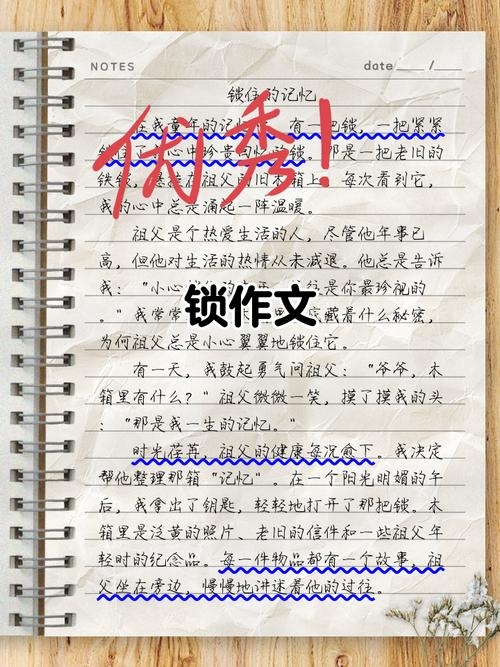 NOTES
date / 
锁住的记忆
在我童年的记忆 有一把锁,一把紧紧
锁住了 心中珍贵回忆的锁。那是一把老旧的
铁锁, 在祖父的旧木箱上。每次看到它,
我的心中总是涌起一阵温暖。
祖父是个热爱生活的人,尽管他年事已
高,但他对生活的热情从未减退。他总是告诉
我:“小心 往是你最珍视的
。”我常常 藏着什么秘密,
为何祖父总是小心翼翼地锁住它。
有一天,我鼓起勇气问祖父:“爷爷,木
箱里有什么?”祖父微微一笑,摸了摸我的头
:“那是我一生的记忆。”
时光荏苒,祖父的健康每况愈下。我决定
帮他整理那箱“记忆”。在一个阳光明媚的午
后,我拿出了钥匙,轻轻地打开了那把锁。木
箱里是泛黄的照片、老旧的信件和一些祖父年
轻时的纪念品。每一件物品都有一个故事,祖
父坐在旁边,慢慢地讲述着他的过往。
优秀!
锁作文